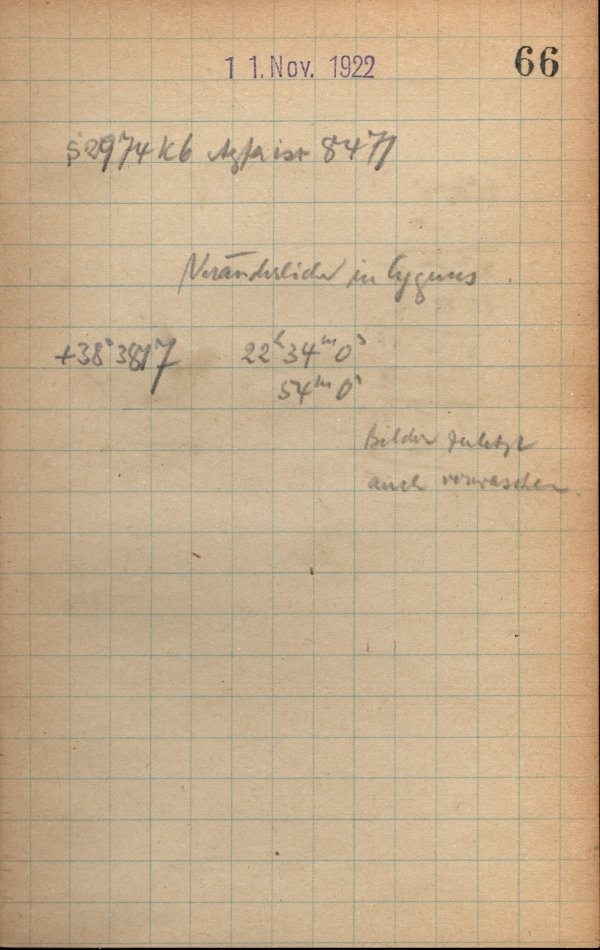 11. Nov. 1922 66
S2974 Kb Agfa iso 8471
Veränderlicher in Cygnus
+38° 3817 22h 34m 0s
54m 0s
Bilder zuletzt
auch verwaschen